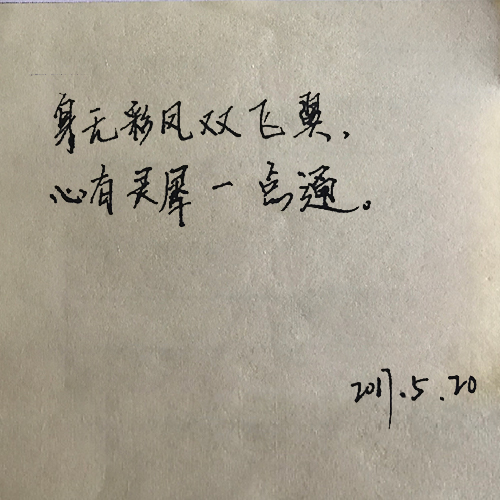 身无彩凤双飞翼，
心有灵犀一点通。
2017.5.20